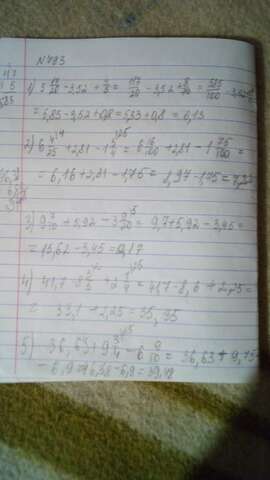 N 793
1) 5 17/20 - 3,52 + 4/5 = 117/20 - 3,52 + 8/10 = 585/100 - 3,52 +
= 5,85 - 3,52 + 0,8 = 5,33 + 0,8 = 6,13
2) 6 4/25 + 2,81 - 1 3/4 = 6 16/100 + 2,81 - 1 75/100 =
= 6,16 + 2,81 - 1,75 = 8,97 - 1,75 =
3) 9 7/10 + 5,92 - 3 9/20 = 9,7 + 5,92 - 3,45 =
= 15,62 - 3,45 =
4) 41,7 - 8 + 2 1/4 = 41,7 - 8,6 + 2,25 =
= 33,1 + 2,25 = 35,35
5) 36,63 + 9 3/4 - 6 9/10 = 36,63 + 9,75
- 6,9 = 46,38 - 6,9 = 39,48